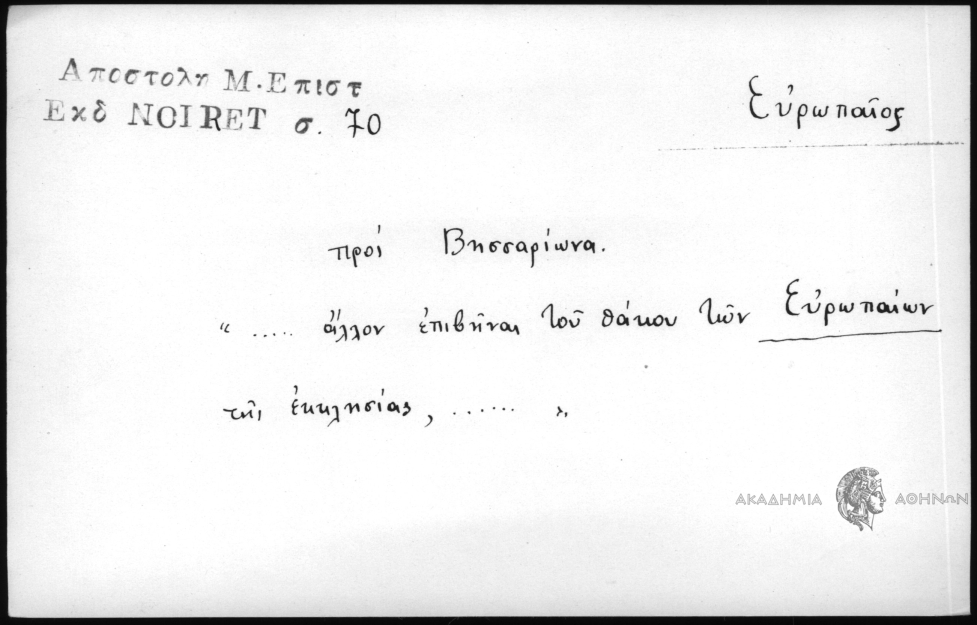 Αποστολη Μ. Επιστ
Εκδ NOIRET σ. 70
Εὐρωπαῖος
πρὸς Βησσαρίωνα.
“ ..... ἄλλον ἐπιβῆναι τοῦ θάκου τῶν Εὐρωπαίων
τῆς ἐκκλησίας, ...... ”
ΑΚΑΔΗΜΙΑ ΑΘΗΝΩΝ